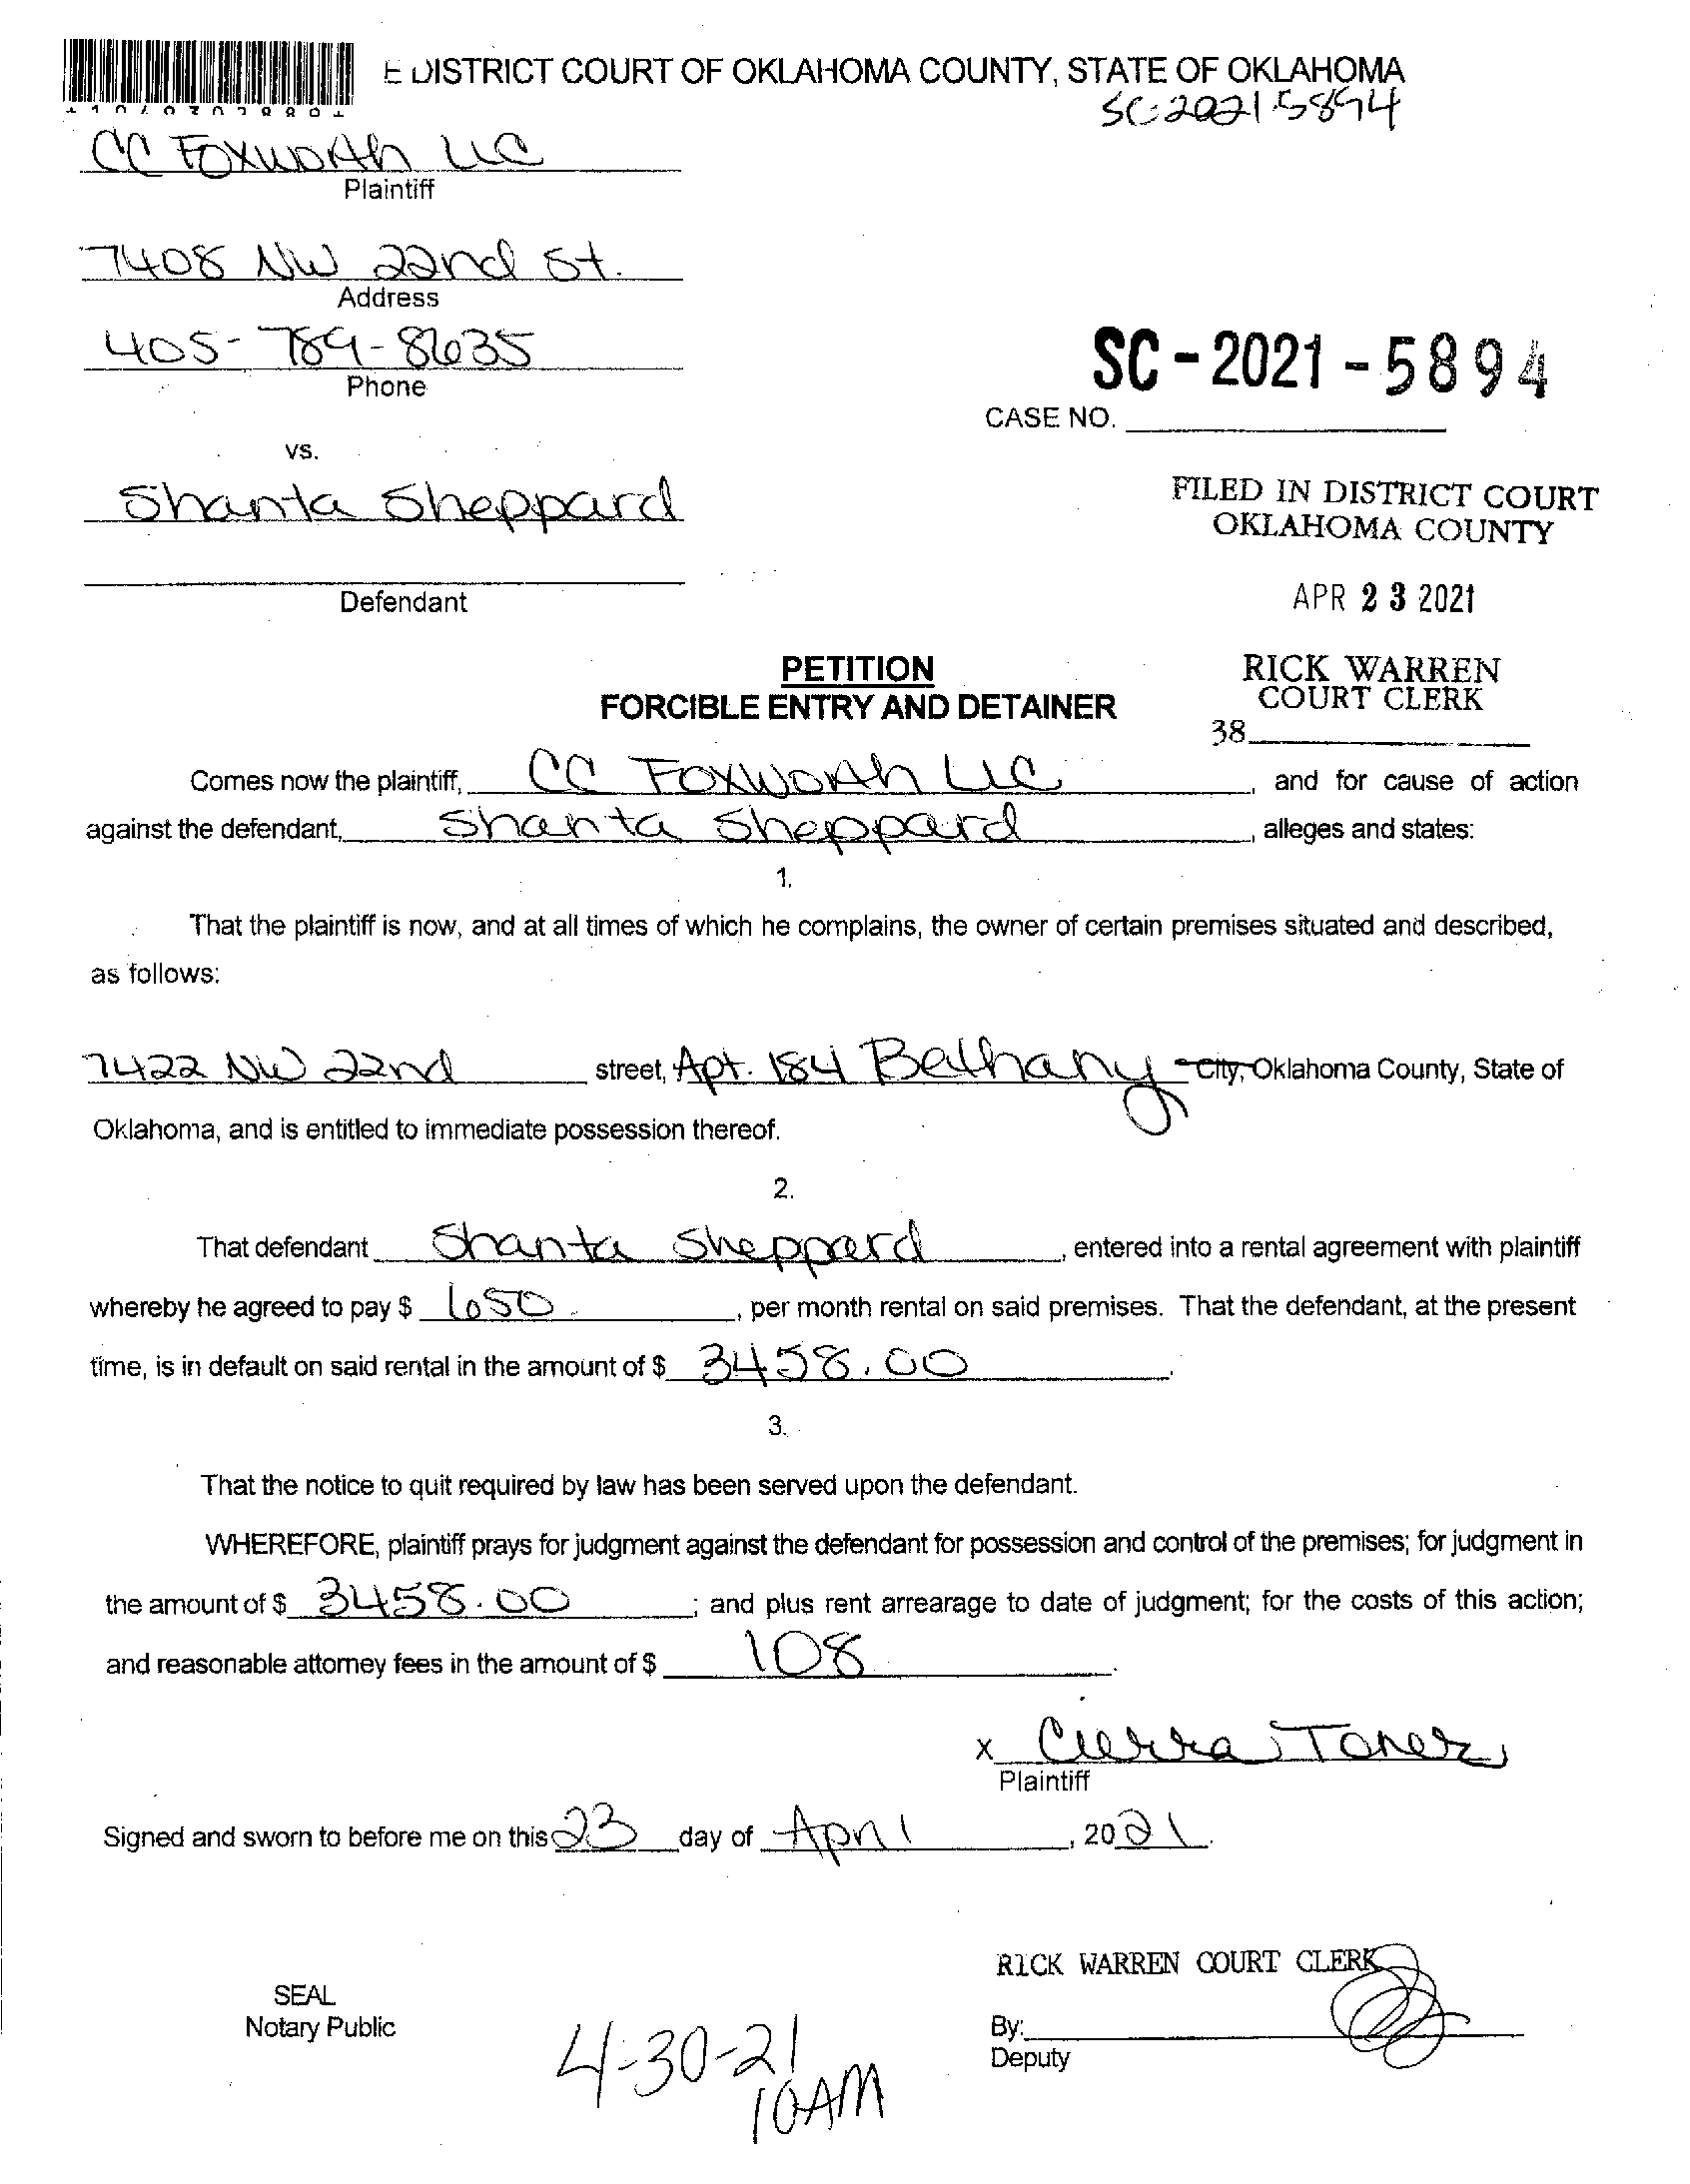 E DISTRICT COURT OF OKLAHOMA COUNTY, STATE OF OKLAHOMA
SC-2021-5894
CC Foxworth LLC
Plaintiff
7408 NW 22nd St.
Address
405-789-8635
Phone
SC-2021-5894
CASE NO.
vs.
Shanta Sheppard
Defendant
FILED IN DISTRICT COURT
OKLAHOMA COUNTY
APR 23 2021
RICK WARREN
COURT CLERK
38
PETITION
FORCIBLE ENTRY AND DETAINER
Comes now the plaintiff, CC Foxworth LLC, and for cause of action
against the defendant, Shanta Sheppard, alleges and states:
1.
That the plaintiff is now, and at all times of which he complains, the owner of certain premises situated and described,
as follows:
7422 NW 22nd street, Apt. 184 Bethany City, Oklahoma County, State of
Oklahoma, and is entitled to immediate possession thereof.
2.
That defendant Shanta Sheppard, entered into a rental agreement with plaintiff
whereby he agreed to pay $ 650, per month rental on said premises. That the defendant, at the present
time, is in default on said rental in the amount of $ 3458.00.
3.
That the notice to quit required by law has been served upon the defendant.
WHEREFORE, plaintiff prays for judgment against the defendant for possession and control of the premises; for judgment in
the amount of $ 3458.00; and plus rent arrearage to date of judgment; for the costs of this action;
and reasonable attorney fees in the amount of $ 108.
x Cierra Toner
Plaintiff
Signed and sworn to before me on this 23 day of April, 2021.
RICK WARREN COURT CLERK
SEAL
Notary Public
By:
Deputy
4-30-21
10AM